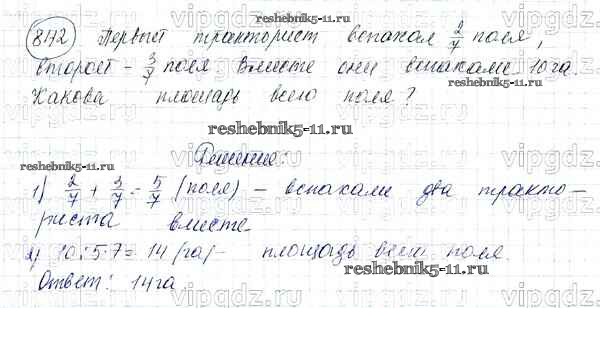 872 Первый тракторист вспахал 2/7 поля,
reshebnik5-11.ru
второй - 3/7 поля. Вместе они вспахали 10 га.
Какова площадь всего поля?
reshebnik5-11.ru
reshebnik5-11.ru
Решение:
reshebnik5-11.ru
1) 2/7 + 3/7 = 5/7 (поля) – вспахали два тракто-
риста вместе
2) 10:5·7=14 (га) – площадь всего поля.
reshebnik5-11.ru
Ответ: 14 га
vipgdz.ru vipgdz.ru vipgdz.ru